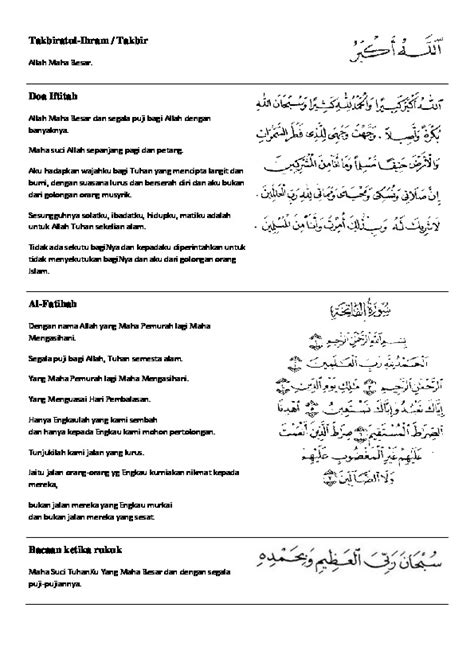 Takbiratul-Ihram / Takbir
Allah Maha Besar.
اَللّٰهُ أَكْبَرُ
Doa Iftitah
Allah Maha Besar dan segala puji bagi Allah dengan
banyaknya.
Maha suci Allah sepanjang pagi dan petang.
Aku hadapkan wajahku bagi Tuhan yang mencipta langit dan
bumi, dengan suasana lurus dan berserah diri dan aku bukan
dari golongan orang musyrik.
Sesungguhnya solatku, ibadatku, hidupku, matiku adalah
untuk Allah Tuhan sekelian alam.
Tidak ada sekutu bagiNya dan kepadaku diperintahkan untuk
tidak menyekutukan bagiNya dan aku dari golongan orang
Islam.
اَللّٰهُ أَكْبَرُ كَبِيرًا وَالْحَمْدُ لِلّٰهِ كَثِيرًا وَسُبْحَانَ اللّٰهِ
بُكْرَةً وَأَصِيلًا . وَجَّهْتُ وَجْهِيَ لِلَّذِي فَطَرَ السَّمَوَاتِ
وَالْأَرْضَ حَنِيفًا مُسْلِمًا وَمَا أَنَا مِنَ الْمُشْرِكِينَ
إِنَّ صَلَاتِي وَنُسُكِي وَمَحْيَايَ وَمَمَاتِي لِلّٰهِ رَبِّ الْعَالَمِينَ .
لَا شَرِيكَ لَهُ وَبِذٰلِكَ أُمِرْتُ وَأَنَا مِنَ الْمُسْلِمِينَ .
Al-Fatihah
Dengan nama Allah yang Maha Pemurah lagi Maha
Mengasihani.
Segala puji bagi Allah, Tuhan semesta alam.
Yang Maha Pemurah lagi Maha Mengasihani.
Yang Menguasai Hari Pembalasan.
Hanya Engkaulah yang kami sembah
dan hanya kepada Engkau kami mohon pertolongan.
Tunjukilah kami jalan yang lurus.
Iaitu jalan orang-orang yg Engkau kurniakan nikmat kepada
mereka,
bukan jalan mereka yang Engkau murkai
dan bukan jalan mereka yang sesat.
سُورَةُ الْفَاتِحَةِ
بِسْمِ اللَّهِ الرَّحْمَٰنِ الرَّحِيمِ
الْحَمْدُ لِلَّهِ رَبِّ الْعَالَمِينَ
الرَّحْمَٰنِ الرَّحِيمِ مَالِكِ يَوْمِ الدِّينِ
إِيَّاكَ نَعْبُدُ وَإِيَّاكَ نَسْتَعِينُ اهْدِنَا
الصِّرَاطَ الْمُسْتَقِيمَ صِرَاطَ الَّذِينَ أَنْعَمْتَ
عَلَيْهِمْ غَيْرِ الْمَغْضُوبِ عَلَيْهِمْ
وَلَا الضَّالِّينَ
Bacaan ketika rukuk
Maha Suci TuhanKu Yang Maha Besar dan dengan segala
puji-pujiannya.
سُبْحَانَ رَبِّيَ الْعَظِيمِ وَبِحَمْدِهِ